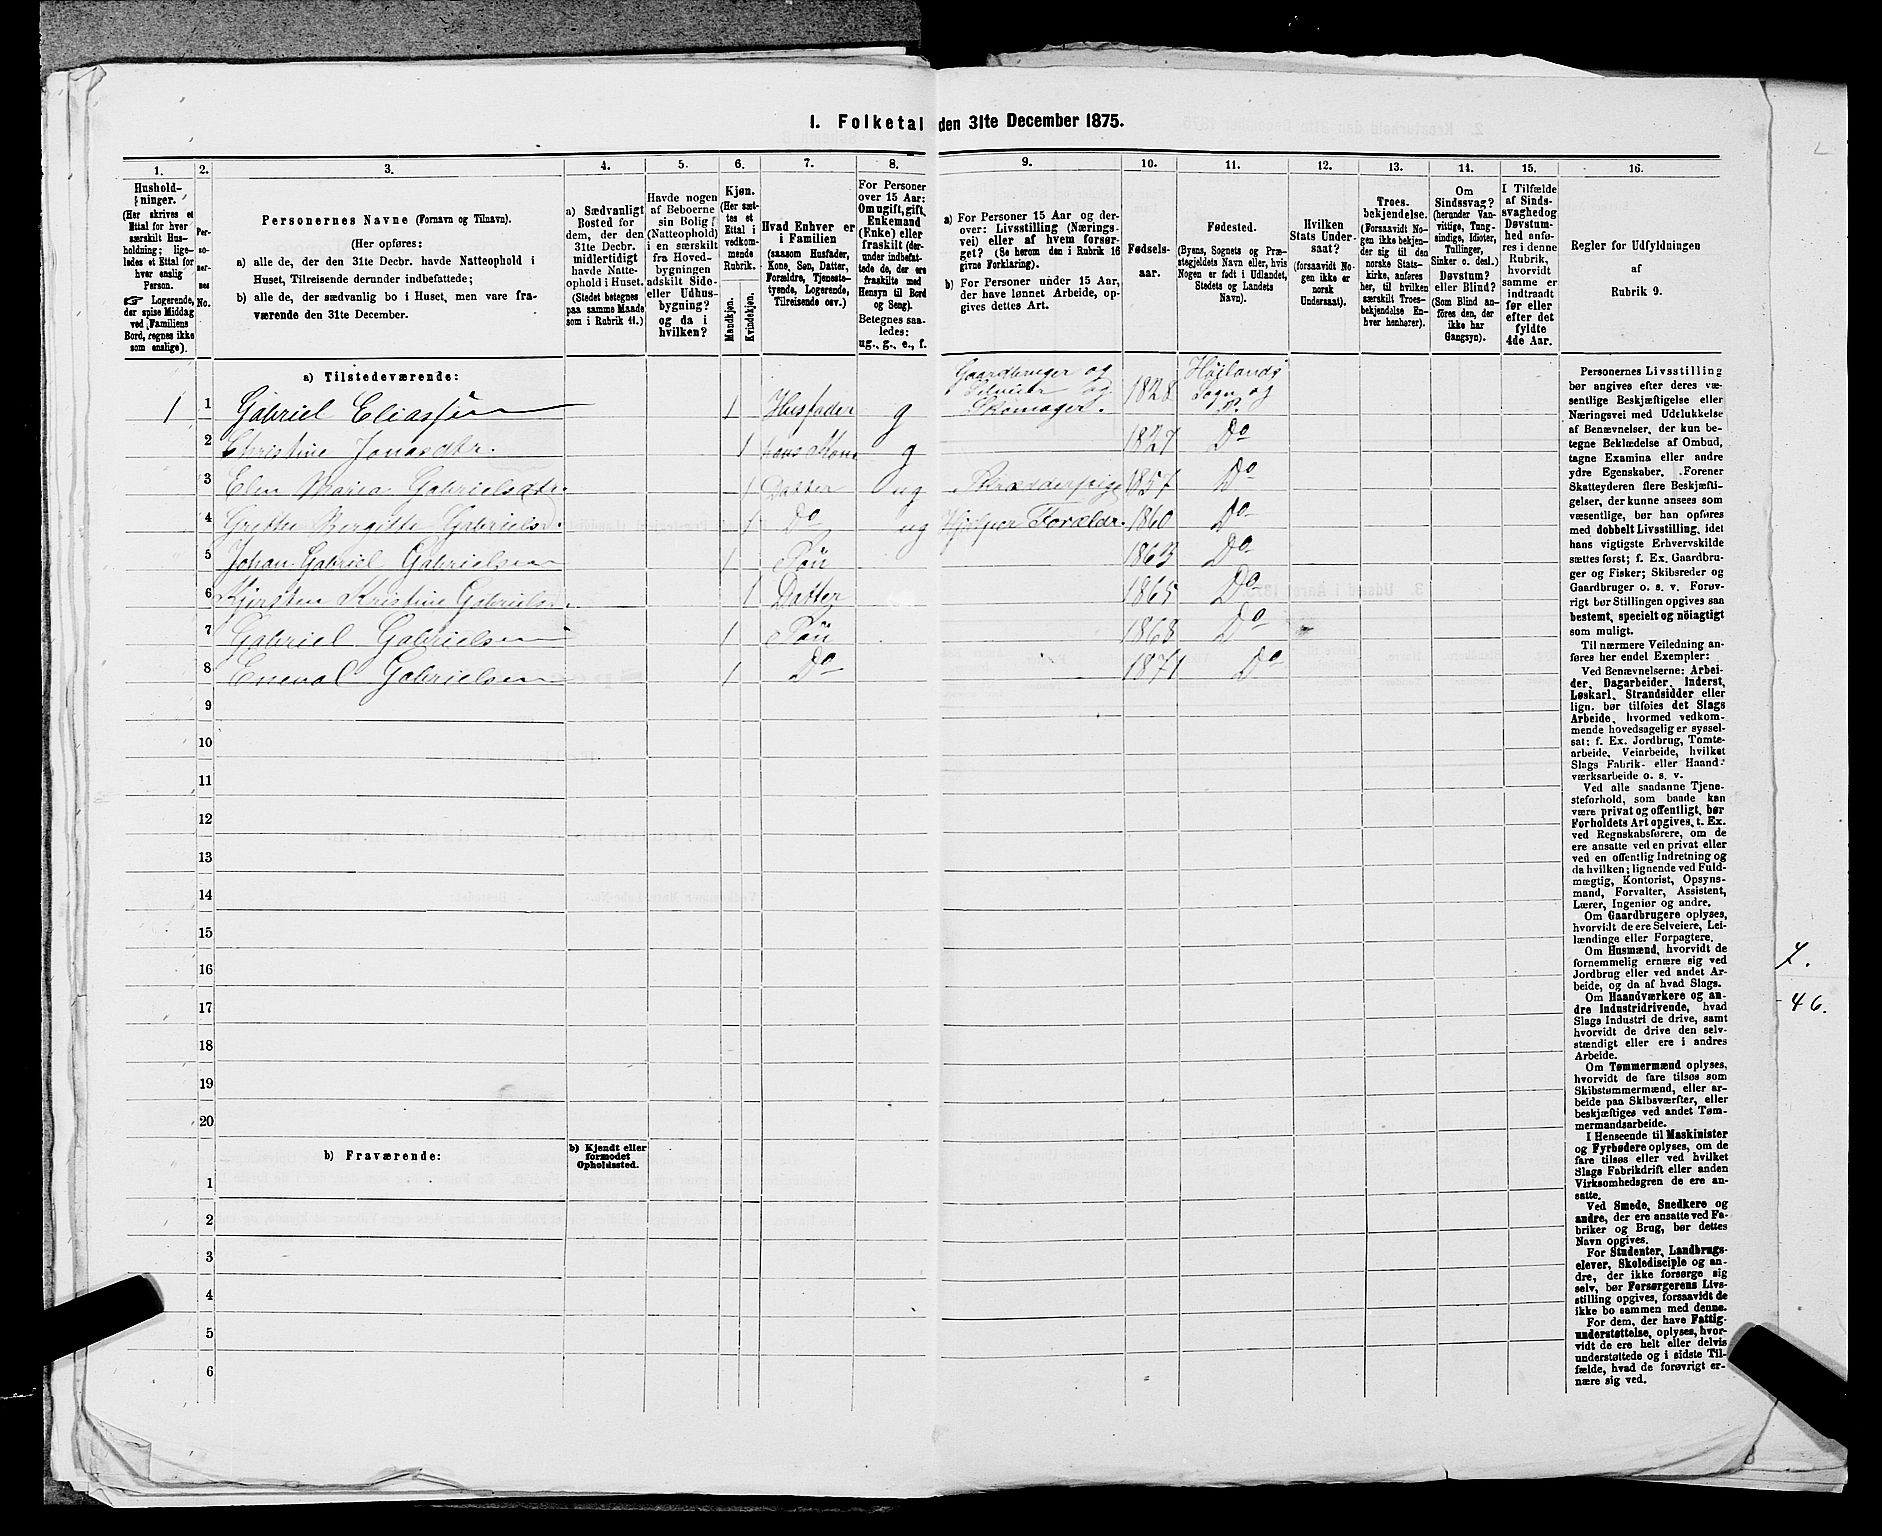 1. Folketal den 31te December 1875.
1. 2. 3. 4. 5. 6. 7. 8. 9. 10. 11. 12. 13. 14. 15. 16.
Hushold-
ninger.
(Her skrives et
Ettal for hver
særskilt Hus-
holdning; lige-
ledes et Ettal for
hver enslig
Person.
☞ Logerende,
der spise Middag
ved Familiens
Bord, regnes ikke
som enslige).
Per-
so-
ner-
nes
No.
Personernes Navne (Fornavn og Tilnavn).
(Her opføres:
a) alle de, der den 31te Decbr. havde Natteophold i
Huset, Tilreisende derunder indbefattede;
b) alle de, der sædvanlig bo i Huset, men vare fra-
værende den 31te December.
a) Sædvanligt
Bosted for
dem, der den
31te Decbr.
midlertidigt
havde Natte-
ophold i Huset.
(Stedet betegnes
paa samme Maade
som i Rubrik 11.)
Havde nogen
af Beboerne
sin Bolig
(Natteophold)
i en særskilt
fra Hoved-
bygningen
adskilt Side-
eller Udhus-
bygning?
og da i
hvilken?
Kjøn.
(Her sæt-
tes et
Ettal i
vedkom-
mende
Rubrik.
Mandkjøn.
Kvindekjøn.
Hvad Enhver er
i Familien
(saasom Husfader,
Kone, Søn, Datter,
Forældre, Tjeneste-
tyende, Logerende,
Tilreisende osv.)
For Personer
over 15 Aar:
Om ugift, gift,
Enkemand
(Enke) eller
fraskilt (der-
under indbefat-
tede de, der ere
fraskilte med
Hensyn til Bord
og Seng).
Betegnes saa-
ledes:
ug., g., e., f.
a) For Personer 15 Aar og der-
over: Livsstilling (Nærings-
vei) eller af hvem forsør-
get? (Se herom den i Rubrik 16
givne Forklaring).
b) For Personer under 15 Aar,
der have lønnet Arbeide, op-
gives dettes Art.
Fødsels-
aar.
Fødested.
(Byens, Sognets og Præ-
stegjeldets Navn eller, hvis
Nogen er født i Udlandet,
Stedets og Landets
Navn).
Hvilken
Stats Under-
saat?
(forsaavidt No-
gen ikke er
norsk
Undersaat).
Troes-
bekjendelse.
(Forsaavidt No-
gen ikke bekjen-
der sig til den
norske Stats-
kirke, anføres
her, til hvilken
særskilt Troes-
bekjendelse En-
hver henhører).
Om
Sindssvag?
(herunder Van-
vittige, Tung-
sindige, Idioter,
Tullinger,
Sinker o. desl.)
Døvstum?
eller Blind?
(Som Blind an-
føres den, der
ikke har
Gangsyn).
I Tilfælde
af Sinds-
svaghed og
Døvstum-
hed anfø-
res i denne
Rubrik,
hvorvidt
samme er
indtraadt
før eller
efter det
fyldte
4de Aar.
Regler for Udfyldningen
af
Rubrik 9.
a) Tilstedeværende:
1 1 Gabriel Eliassen 1 Husfader g Gaardbruger og Selveier og Skomager. 1828 Høilands Sogn og
2 Christine Jonasdtr. 1 hans Kone g 1827 Do
3 Elen Maria Gabrielsdtr. 1 Datter ug Skrædderpige 1857 Do
4 Grethe Bergitte Gabrielsd. 1 Do ug Hjelper Forældr. 1860 Do
5 Johan Gabriel Gabrielsen 1 Søn 1863 Do
6 Kjersten Kristine Gabrielsd. 1 Datter 1865 Do
7 Gabriel Gabrielsen 1 Søn 1868 Do
8 Eneval Gabrielsen 1 Do 1871 Do
9
10
11
12
13
14
15
16
17
18
19
20
b) Fraværende:
b) Kjendt eller
formodet
Opholdssted.
1
2
3
4
5
6
Personernes Livsstilling
bør angives efter deres væ-
sentlige Beskjæftigelse eller
Næringsvei med Udelukkelse
af Benævnelser, der kun be-
tegne Beklædelse af Ombud,
tagne Examina eller andre
ydre Egenskaber. Forener
Skatteyderen flere Beskjæfti-
gelser, der kunne ansees som
væsentlige, bør han opføres
med dobbelt Livsstilling, idet
hans vigtigste Erhvervskilde
sættes først; f. Ex. Gaardbru-
ger og Fisker; Skibsreder og
Gaardbruger o. s. v. Forøv-
rigt bør Stillingen opgives saa
bestemt, specielt og nöiagtigt
som muligt.
Til nærmere Veiledning an-
føres her endel Exempler:
Ved Benævnelserne: Arbei-
der, Dagarbeider, Inderst,
Løskarl, Strandsidder eller
lign. bør tilføies det Slags
Arbeide, hvormed vedkom-
mende hovedsagelig er syssel-
sat; f. Ex. Jordbrug, Tomte-
arbeide, Veiarbeide, hvilket
Slags Fabrik- eller Haand-
værksarbeide o. s. v.
Ved alle saadanne Tjene-
steforhold, som baade kan
være privat og offentligt, bør
Forholdets Art opgives, t. Ex.
ved Regnskabsførere, om de
ere ansatte ved en privat eller
ved en offentlig Indretning og
da hvilken; lignende ved Fuld-
mægtig, Kontorist, Opsyns-
mand, Forvalter, Assistent,
Lærer, Ingeniør og andre.
Om Gaardbrugere oplyses,
hvorvidt de ere Selveiere, Lei-
lændinge eller Forpagtere.
Om Husmænd, hvorvidt de
fornemmelig ernære sig ved
Jordbrug eller ved andet Ar-
beide, og da af hvad Slags.
Om Haandværkere og an-
dre Industridrivende, hvad
Slags Industri de drive, samt
hvorvidt de drive den selv-
stændigt eller ere i andres
Arbeide.
Om Tømmermænd oplyses,
hvorvidt de fare tilsøs som
Skibstømmermænd, eller ar-
beide paa Skibsværfter, eller
beskjæftiges ved andet Tøm-
mermandsarbeide.
I Henseende til Maskinister
og Fyrbødere oplyses, om de
fare tilsøs eller ved hvilket
Slags Fabrikdrift eller anden
Virksomhedsgren de ere an-
satte.
Ved Smede, Snedkere og
andre, der ere ansatte ved Fa-
briker og Brug, bør dettes
Navn opgives.
For Studenter, Landbrugs-
elever, Skoledisciple og an-
dre, der ikke forsørge sig
selv, bør Forsørgerens Livs-
stilling opgives, forsaavidt de
ikke bo sammen med denne.
For dem, der have Fattig-
understøttelse, oplyses, hvor-
vidt de ere helt eller delvis
understøttede og i sidste Til-
fælde, hvad de forøvrigt er-
nære sig ved.
46.